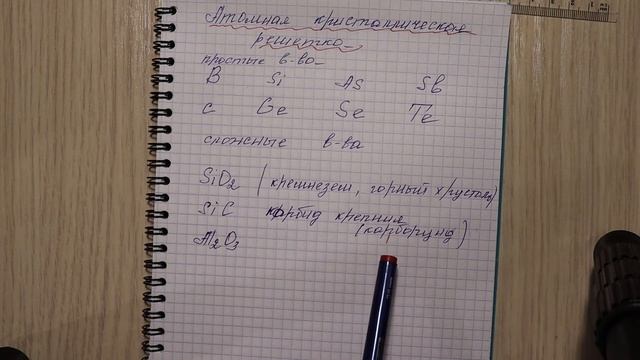 Атомная кристаллическая
решетка
простые в-ва
B Si As Sb
C Ge Se Te
сложные в-ва
SiO2 (кремнезем, горный хрусталь)
SiC карбид кремния
(карборунд)
Al2O3